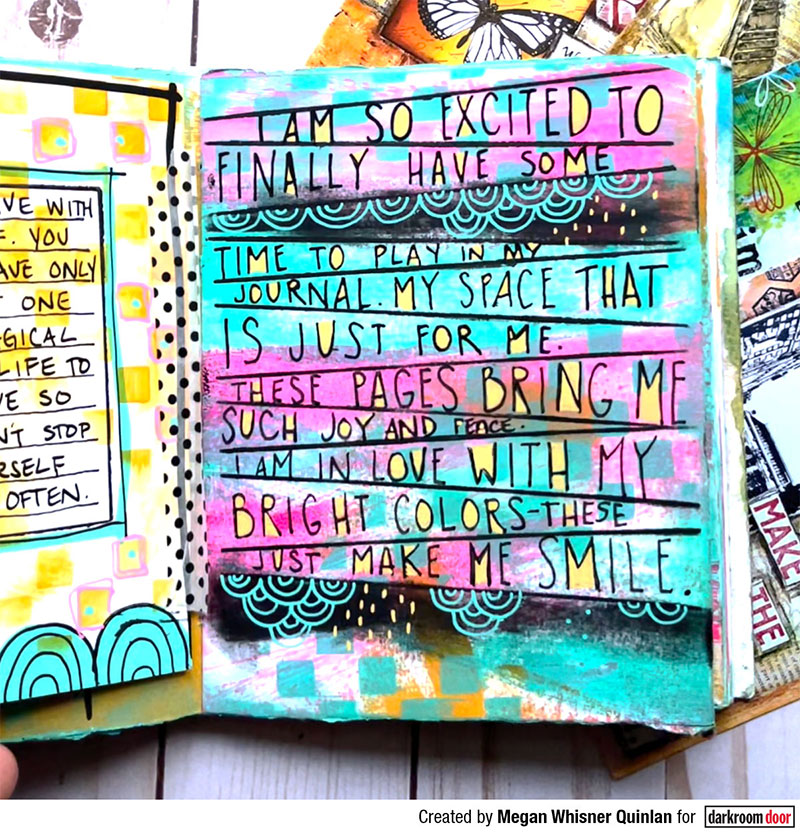 VE WITH
YOU
AVE ONLY
ONE
GICAL
LIFE TO
VE SO
N'T STOP
RSELF
OFTEN.
I AM SO EXCITED TO
FINALLY HAVE SOME
TIME TO PLAY IN MY
JOURNAL. MY SPACE THAT
IS JUST FOR ME.
THESE PAGES BRING ME
SUCH JOY AND PEACE.
I AM IN LOVE WITH MY
BRIGHT COLORS-THESE
JUST MAKE ME SMILE.
MAKE
THE
Created by Megan Whisner Quinlan for darkroom door